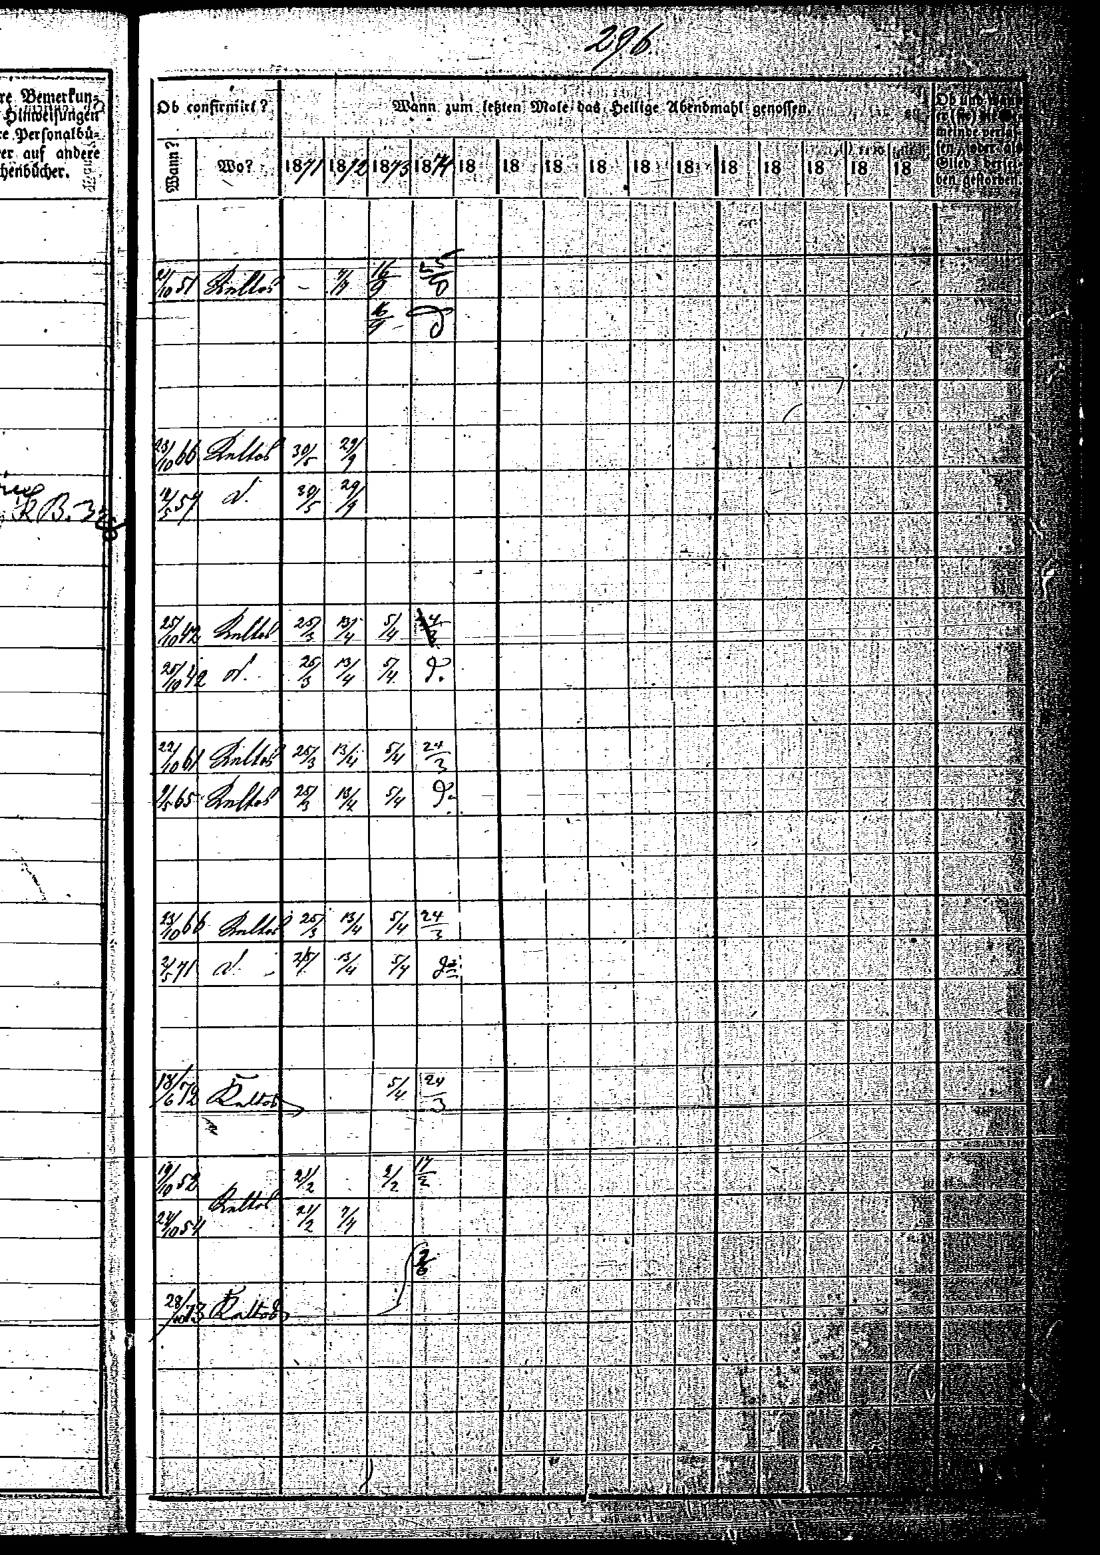 296
re Bemerkun-
Hinweisungen
re Personalbü-
er auf andere
chenbücher.
Ob confirmirt?
Wann zum letzten Male das Heilige Abendmahl genossen.
Ob und wann er (sie) die Ge-
meinde verlas-
sen, oder als
Glied dersel-
ben gestorben.
Wann? Wo? 1871 1872 1873 1874 18 18 18 18 18 18 18 18 18 18 18
51 Kaltos - 16/9 25/
16/9 d
23/10 66 Kaltos 30/5 29/9
57 d. 30/5 29/9
K B. 32
25/10 42 Kaltos 25/3 13/4 5/4
25/10 42 d. 25/3 13/4 5/4 d.
22/10 61 Kaltos 25/3 13/4 5/4 24/3
65 Kaltos 25/3 13/4 5/4 d.
23/10 66 Kaltos 25/3 13/4 5/4 24/3
2/5 71 d. 25/ 13/4 5/4 do
18/6 72 Kaltos 5/4 24/3
19/10 52 21/2 2/2 17/2
Kaltos
24/10 54 21/2 7/4
28/10 73 Kaltos